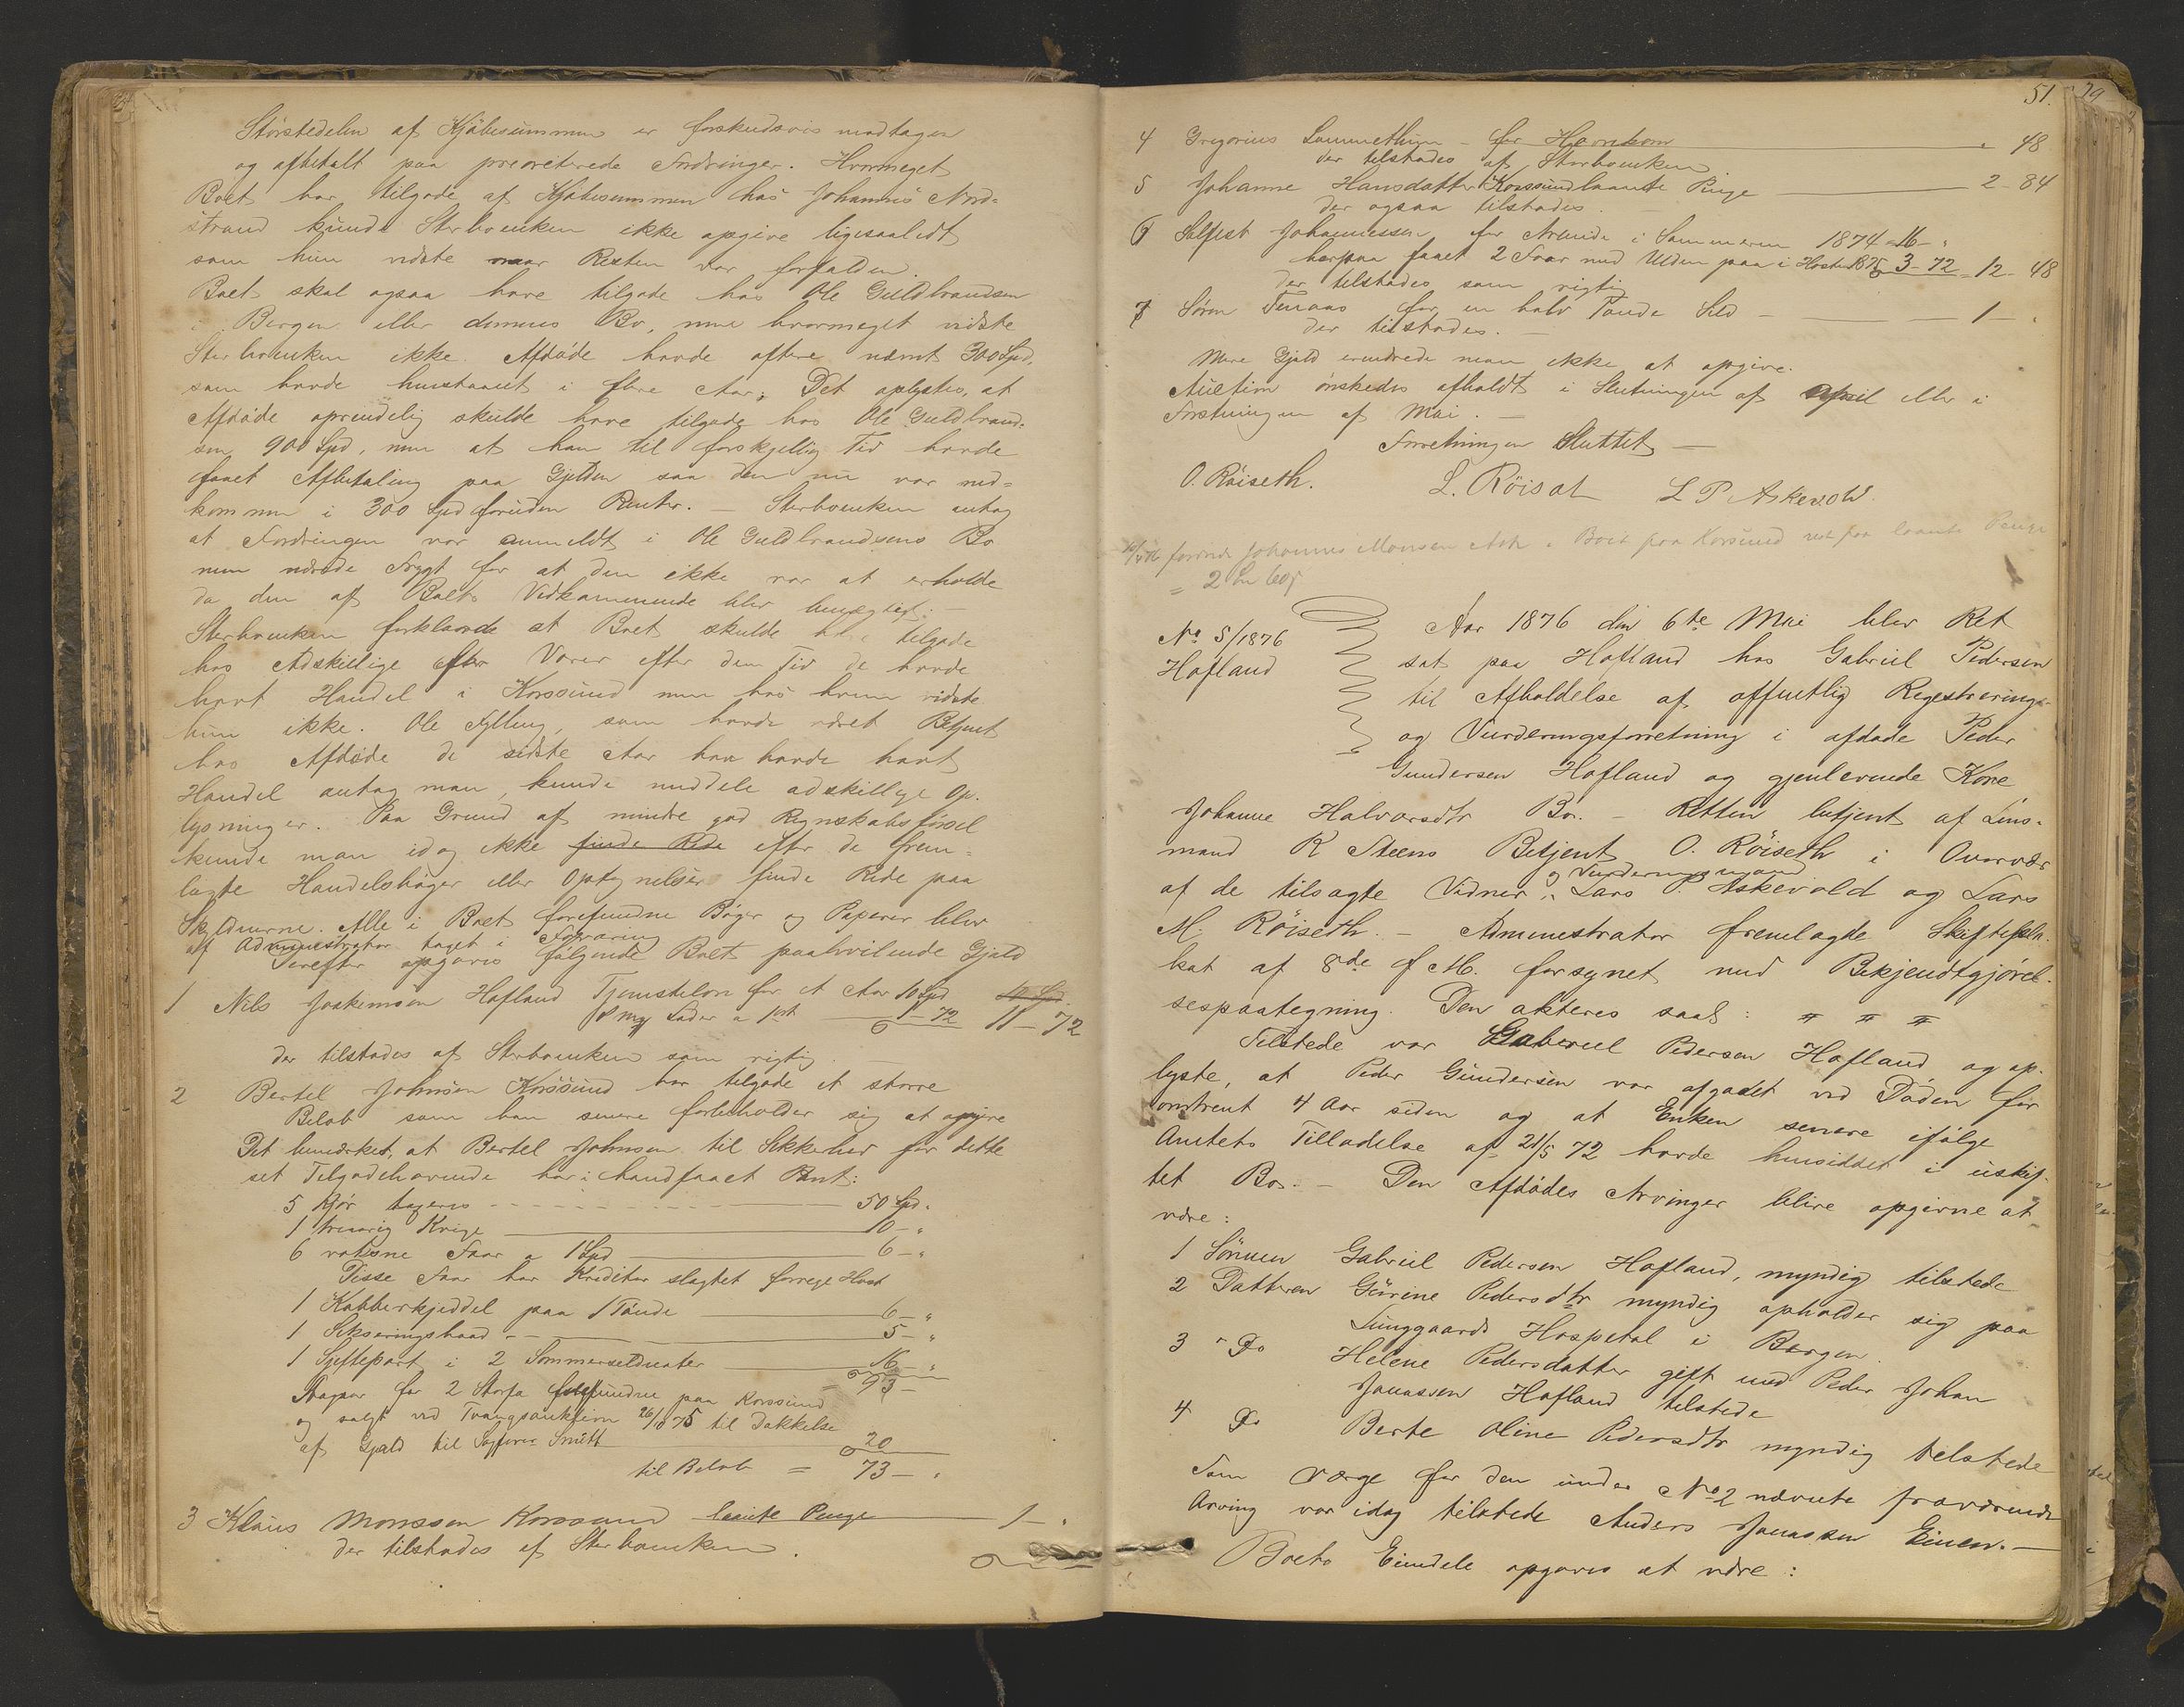 Störstedelen af Kjöbesummen er forskudsvis modtagen
og afbetalt paa preoriterede Fordringer. Hvormeget
Boet har tilgode af Kjöbesummen hos Johannes Nord-
strand kunde Sterboenken ikke opgive ligesaalidt
som hun vidste naar Resten var forfalden.
Boet skal ogsaa have tilgode hos Ole Guldbrandsen
i Bergen eller dennes Bo, men hvormeget vidste
Sterboenken ikke. Afdöde havde oftere nævnt 300 Spd,
som havde henstaaet i flere Aar. Det oplystes, at
Afdöde oprindelig skulde have tilgode hos Ole Guldbrand-
sen 900 Spd, men at han til forskjellig Tid havde
faaet Afbetaling paa Gjelden saa den nu var ned-
kommen i 300 Spd foruden Renter. — Sterboenken antog
at Fordringen var anmeldt i Ole Guldbrandsens Bo
men nærede Frygt for at den ikke var at erholde
da den af Boets Vedkommende blev benægtet. —
Sterboenken forklarede at Boet skulde have tilgode
hos Adskillige efter Varer efter den Tid de havde
havt Handel i Korssund men hos hvem vidste
hun ikke. Ole Fylling, som havde været Betjent
hos Afdöde de sidste Aar han havde havt
Handel antog man, kunde meddele adskillige Op-
lysninger. Paa Grund af mindre god Regnskabsförsel
kunde man idag ikke finde Rede efter de frem-
lagte Handelsböger eller Optegnelser finde Rede paa
Skyldnerne. Alle i Boet forefundne Böger og Papirer blev
af Administrator taget i Forvaring
Derefter opgaves fölgende Boet paahvilende Gjæld
1 Nils Joakimsen Hofland Tjenestelön for et Aar 10 Spd 10 Spd.
Læder a 1 - 72 11 - 72
der tilstodes af Sterboenken som rigtig.
2 Bertel Johnsen Korssund har tilgode et större
Belöb som han senere forbeholder sig at opgive
Det bemærkes, at Bertel Johnsen til Sikkerhed for dette
sit Tilgodehavende har i handfaaet Pant:
5 Kjör tageres 50 Spd.
1 treaarig Kvige 10 - "
6 voksne Faar a 1 Spd 6 - "
Disse Faar har Kreditor slagtet forrige Höst
1 Kobberkjeddel paa 1 Tönde 6 - "
1 Sekseringsbaad - 5 - "
1 Sjettepart i 2 Sommersildnoter 16 - "
93 -
for 2 forefundne paa Korssund
og solgt ved Tvangsauktion 26/10 75 til Dækkelse
af Gjæld til Sagförer Smitt 20
til Belöb = 73 - "
3 Klaus Monssen Korssund laante Penge 1 - "
der tilstodes af Sterboenken.
51.
4 Gregorius for " 48
der tilstodes af Sterboenken
5 Johanne Hansdatter Korssund laante Penge 2 - 84
der ogsaa tilstodes.
6 Johannessen for Arbeide i Sommeren 1874 - 16 - "
herpaa faaet 2 Faar med Ulden paa i Hösten 1875 3 - 72 = 12 - 48
der tilstodes som rigtig
7 Sören for en halv Tönde Sild - 1 - "
der tilstodes.
Mere Gjæld erindrede man ikke at opgive.
Auction önskedes afholdt i Slutningen af April eller i
Forstningen af Mai. —
Forretningen Sluttet —
O. Röiseth. L. Röiset L P Askevold
Johannes Monsen Boet fra Korssund laante Penge
No 5/1876
Hofland
Aar 1876 den 6te Mai blev Ret
sat paa Hofland hos Gabriel Pedersen
til Afholdelse af offentlig Regestrerings-
og Vurderingsforretning i afdöde Peder
Gundersen Hofland og gjenlevende Kone
Johanne Halvorsdtr Bo. — Retten betjent af Lens-
mand K Steens Betjent O. Röiseth i Overvær
af de tilsagte Vidner og Vurderingsmænd Lars P Askevold og Lars
M. Röiseth. — Administrator fremlagte Skiftepla-
kat af 8de f M. forsynet med Bekjendtgjörel-
sespaategning. Den akteres saal: # # #
Tilstede var Gabriel Pedersen Hofland og op-
lyste, at Peder Gundersen var afgaaet ved Döden for
omtrent 4 Aar siden og at Enken senere ifölge
Amtets Tilladelse af 21/5 72 havde hensiddet i uskif-
tet Bo. — Den Afdödes Arvinger blive opgivne at
være:
1 Sönnen Gabriel Pedersen Hofland, myndig tilstede
2 Datteren Gurine Pedersdtr myndig opholder sig paa
Lunggaards Hospetal i Bergen.
3 " Do Helene Pedersdatter gift med Peder Johan
Jonassen Hofland tilstede
4 Do Berte Oline Pedersdtr myndig tilstede
Som Værge for den under No 2 nævnte fraværende
Arving var idag tilstede Anders Jonassen Einen. —
Boets Eiendele opgaves at være: